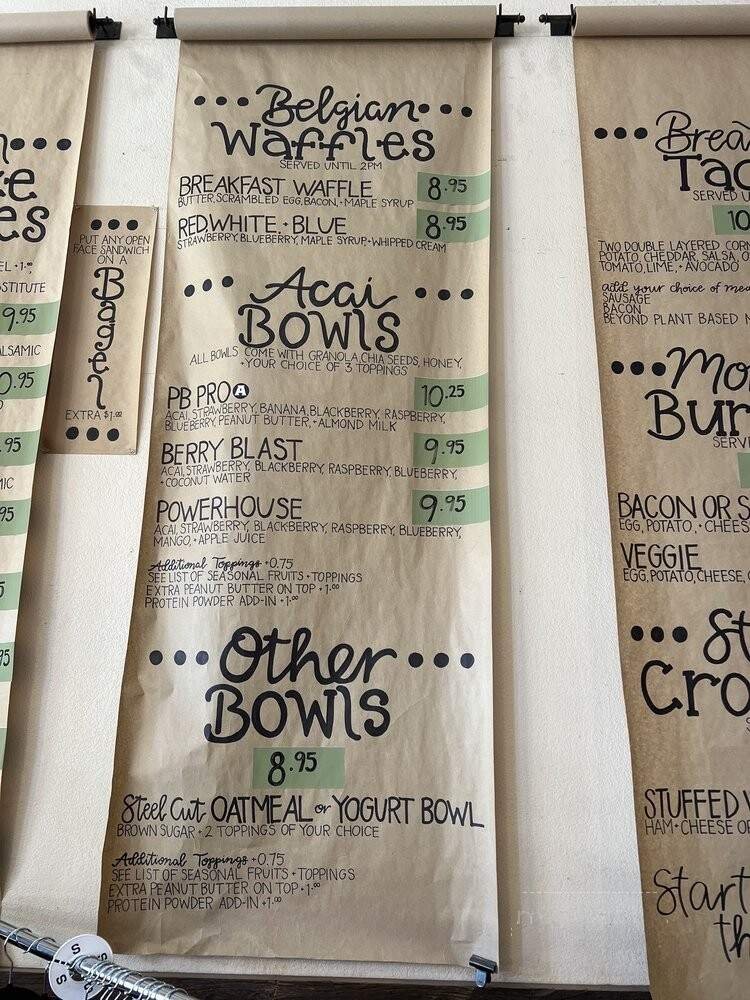 PUT ANY OPEN
FACE SANDWICH
ON A
Bagel
EXTRA $1.00
9.95
.95
Belgian
Waffles
SERVED UNTIL 2PM
BREAKFAST WAFFLE 8.95
BUTTER, SCRAMBLED EGG, BACON, + MAPLE SYRUP
RED, WHITE, + BLUE 8.95
STRAWBERRY, BLUEBERRY, MAPLE SYRUP, + WHIPPED CREAM
Acai
BOWLS
ALL BOWLS COME WITH GRANOLA, CHIA SEEDS, HONEY,
+ YOUR CHOICE OF 3 TOPPINGS
PB PRO A 10.25
ACAI, STRAWBERRY, BANANA, BLACKBERRY, RASPBERRY,
BLUEBERRY, PEANUT BUTTER, + ALMOND MILK
BERRY BLAST 9.95
ACAI, STRAWBERRY, BLACKBERRY, RASPBERRY, BLUEBERRY,
+ COCONUT WATER
POWERHOUSE 9.95
ACAI, STRAWBERRY, BLACKBERRY, RASPBERRY, BLUEBERRY,
MANGO, + APPLE JUICE
Additional Toppings +0.75
SEE LIST OF SEASONAL FRUITS + TOPPINGS
EXTRA PEANUT BUTTER ON TOP +1.00
PROTEIN POWDER ADD-IN +1.00
Other
BOWLS
8.95
Steel Cut OATMEAL or YOGURT BOWL
BROWN SUGAR + 2 TOPPINGS OF YOUR CHOICE
Additional Toppings +0.75
SEE LIST OF SEASONAL FRUITS + TOPPINGS
EXTRA PEANUT BUTTER ON TOP +1.00
PROTEIN POWDER ADD-IN +1.00
Brea
Tac
SERVED U
10
TWO DOUBLE LAYERED CORN
POTATO, CHEDDAR, SALSA, O
TOMATO, LIME, + AVOCADO
add your choice of mea
SAUSAGE
BACON
BEYOND PLANT BASED M
Mo
Bur
SERV
BACON OR S
EGG, POTATO, + CHEES
VEGGIE
EGG, POTATO, CHEESE,
St
Cro
STUFFED
HAM + CHEESE OR
Start
th